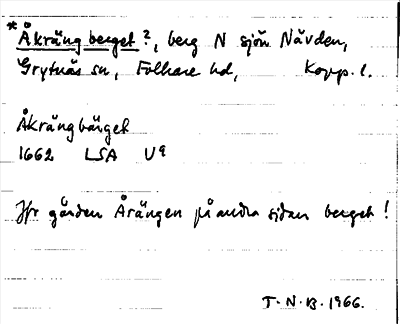 *Åkräng berget?, berg N sjön Nävden,
Grytnäs sn, Folkare hd, Kopp. l.
Åkrängbärget
1662 LSA U9
Jfr gården Årängen på andra sidan berget!
T.N.B. 1966.